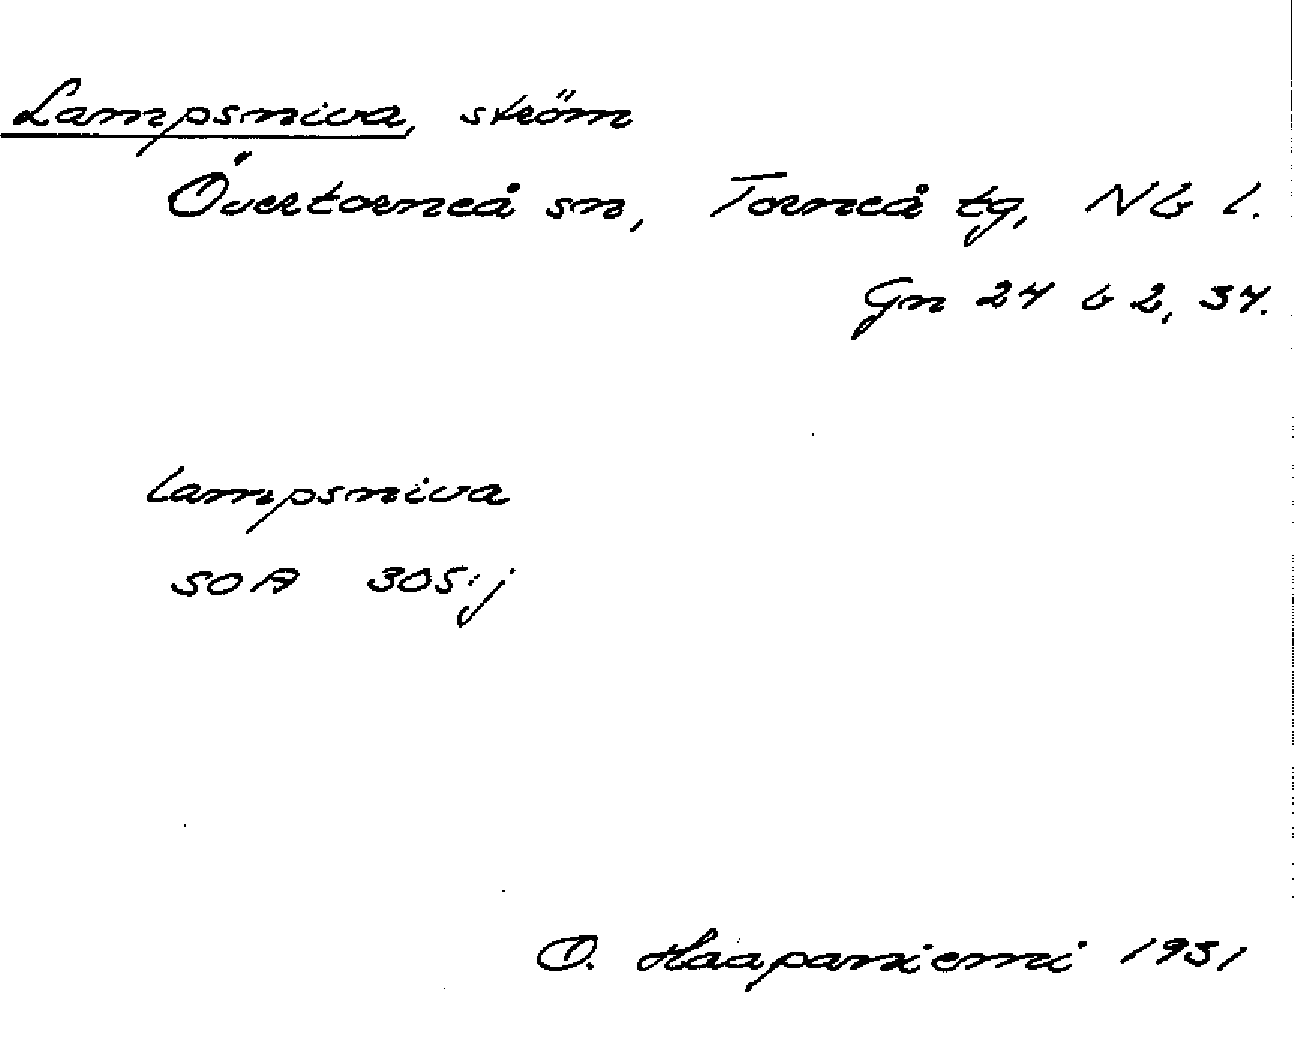 Lampsniva, ström
Övertorneå sn, Torneå tg, Nb l.
Gn 24 b 2, 34.
Lampsniva
SOA 305:j
O. Haapaniemi 1931